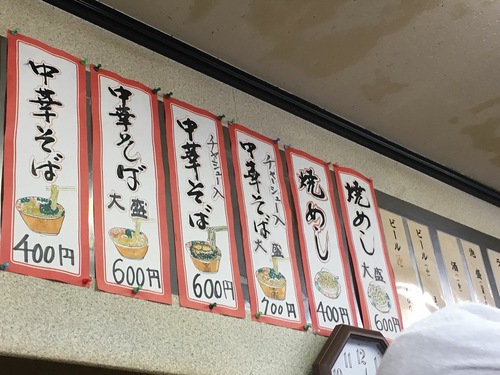 中華そば
400円
中華そば
大盛
600円
チャーシュー入
中華そば
600円
チャーシュー入
中華そば
大盛
700円
焼めし
400円
焼めし
大盛
600円
ビール
ビール
酒
11 12